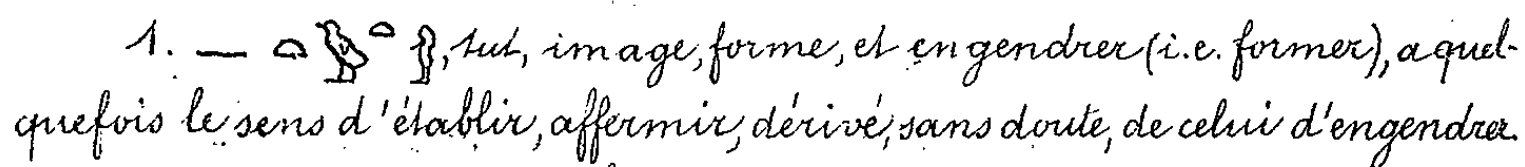 1. — 𓏏𓅱𓏏𓀾, tut, image, forme, et engendrer (i.e. former), a quel-
quefois le sens d'établir, affermir, dérivé, sans doute, de celui d'engendrer.